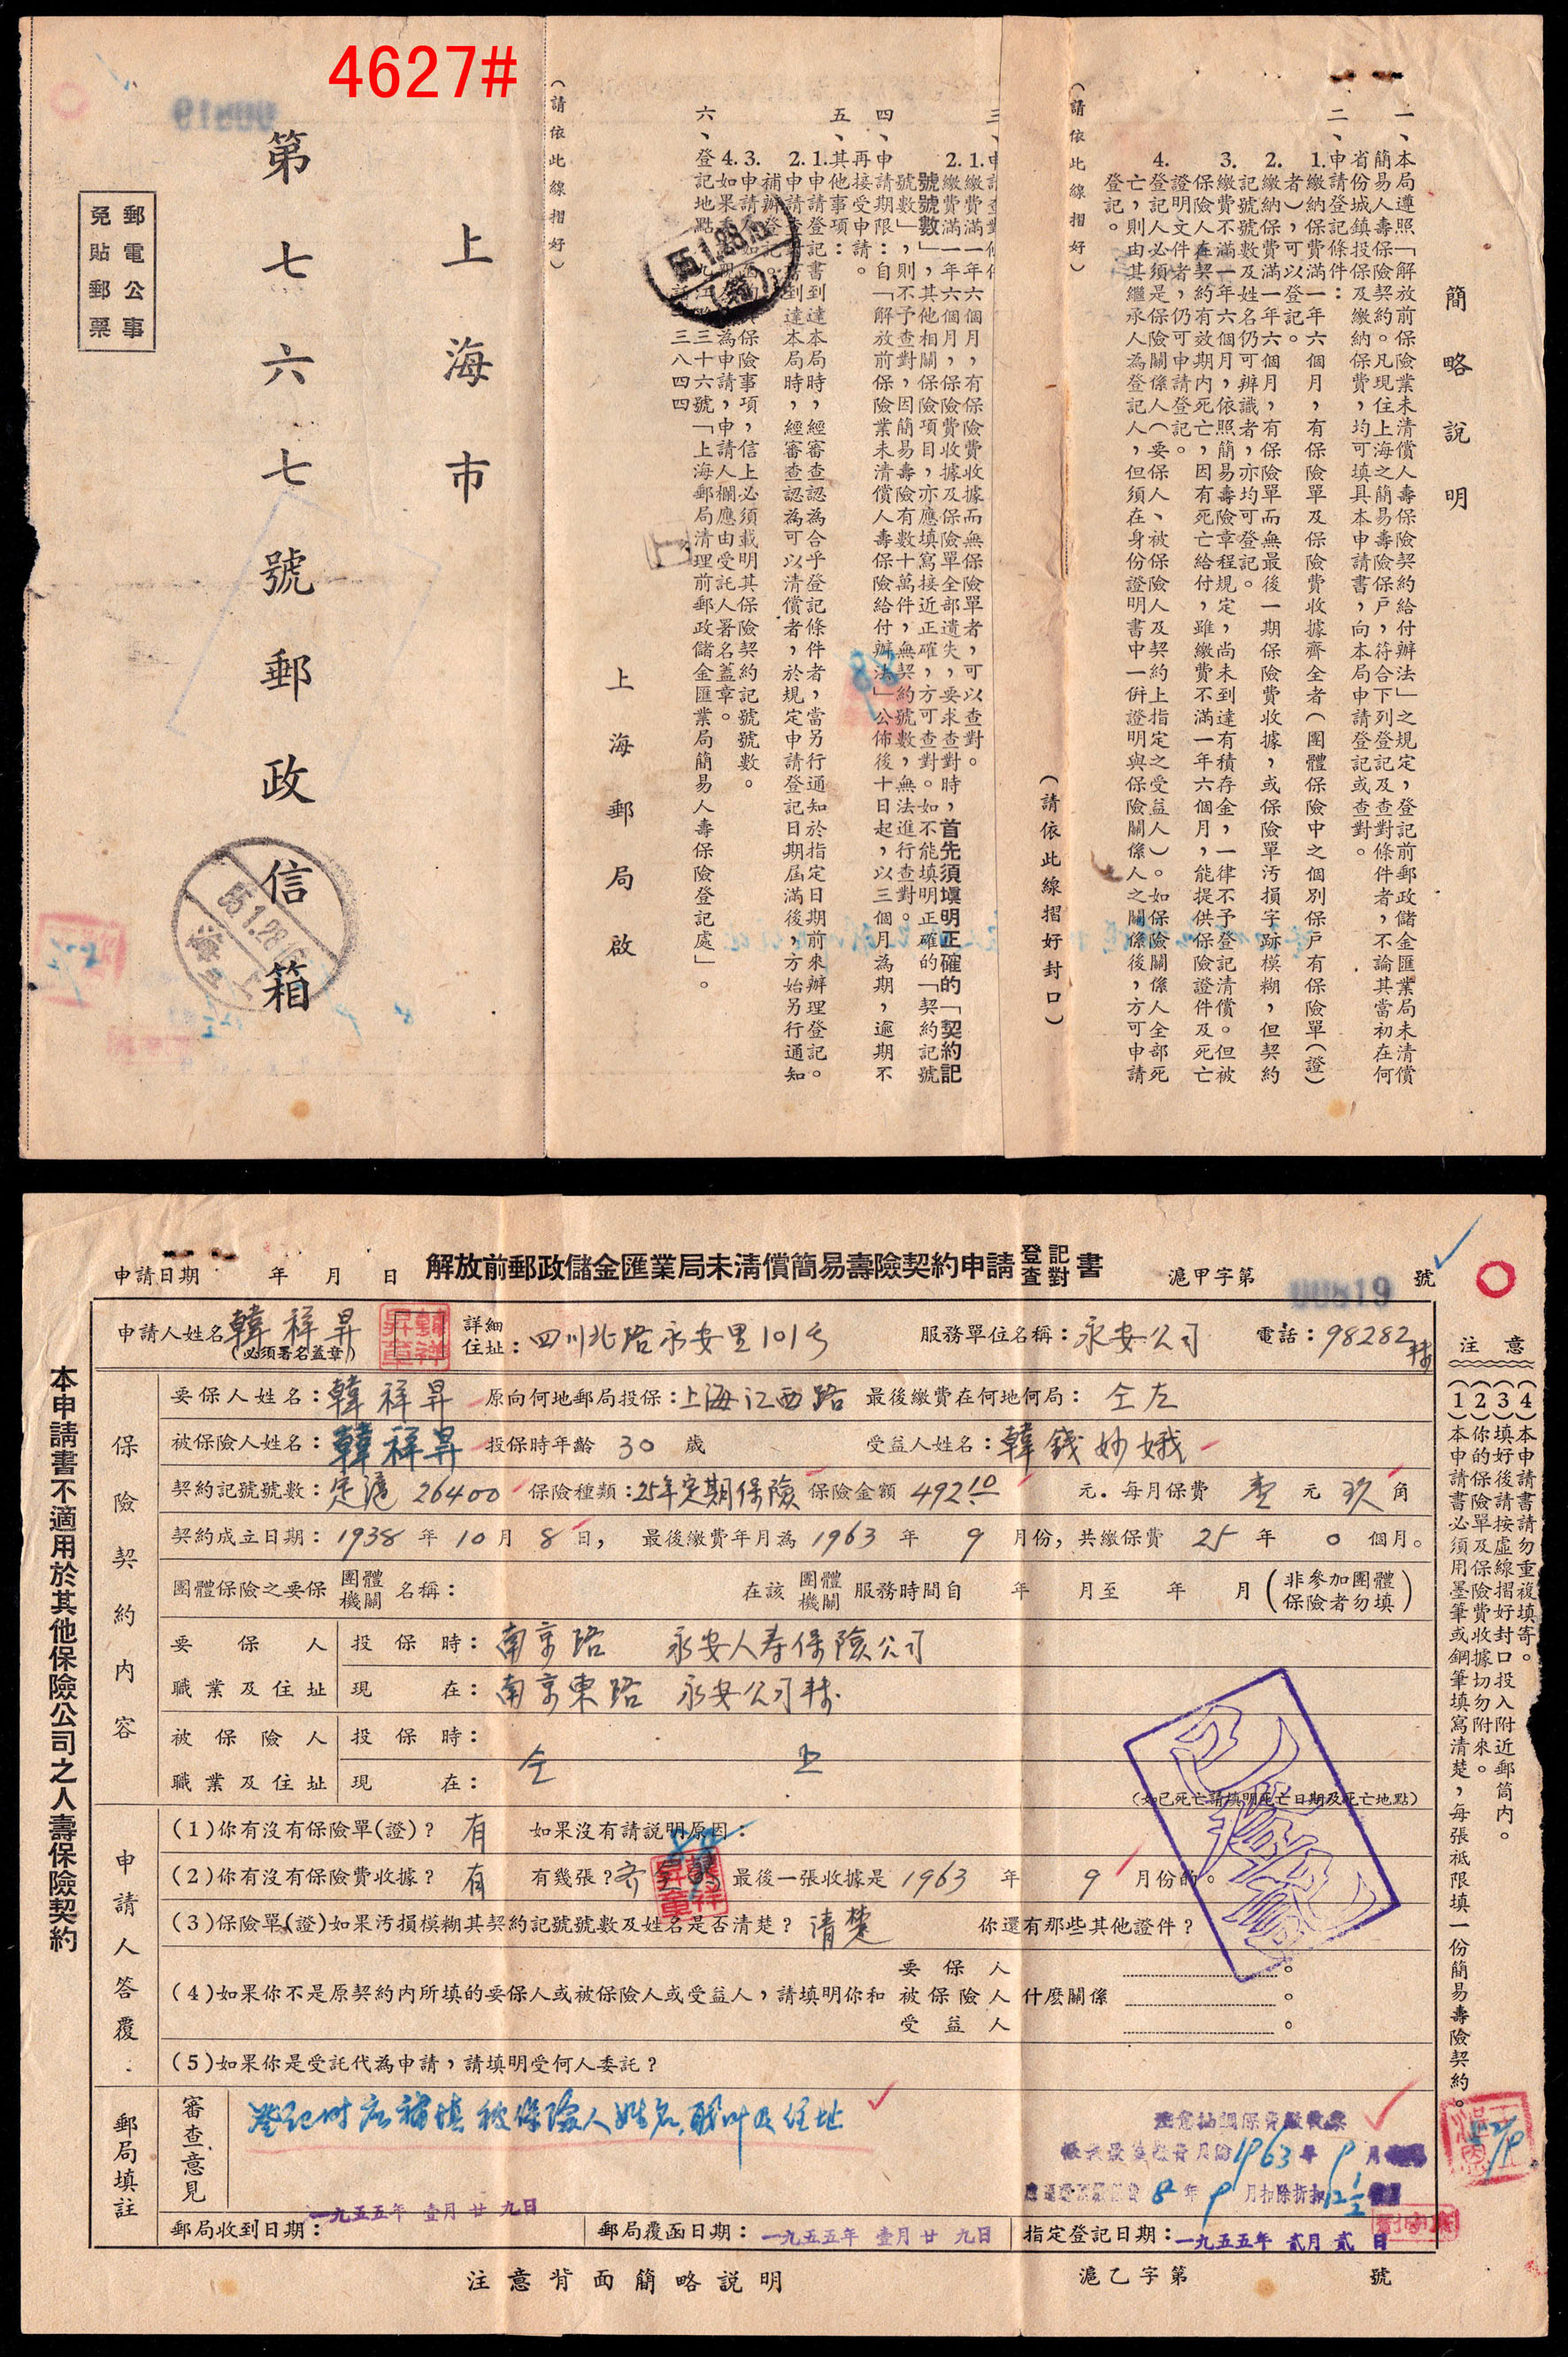 4627#
簡略說明
一、本局遵照「解放前保險業未清償人壽保險契約給付辦法」之規定，登記前郵政儲金匯業局未清償
簡易人壽保險契約。凡現住上海之簡易壽險保戶，符合下列登記及查對條件者，不論其當初在何
省份城鎮投保及繳納保費，均可填具本申請書，向本局申請登記或查對。
二、申請登記條件：
1.繳納保費滿一年六個月，有保險單及保險費收據齊全者（團體保險中之個別保戶有保險單（證）
者），可以登記。
2.繳納保費滿一年六個月，有保險單而無最後一期保險費收據，或保險單汚損字跡模糊，但契約
記號號數及姓名仍可辨識者，亦均可登記。
3.繳費不滿一年六個月，依照簡易壽險章程規定，尚未到達有積存金，一律不予登記清償。但被
保險人在契約有效期內死亡，因有死亡給付，雖繳費不滿一年六個月，能提供保險證件及死亡
證明文件者，仍可申請登記。
4.登記人必須是保險關係人（要保人、被保險人及契約上指定之受益人）。如保險關係人全部死
亡，則由其繼承人為登記人，但須在身份證明書中一併證明與保險關係人之關係後，方可申請
登記。
（請依此線摺好）
（請依此線摺好封口）
1.繳費滿一年六個月，有保險費收據而無保險單者，可以查對。
2.繳費滿一年六個月，保險費收據及保險單全部遺失，要求查對時，首先須塡明正確的「契約記
號號數」，其他相關保險項目，亦應填寫接近正確，方可查對。如不能填明正確的「契約記號
號數」，則不予查對，因簡易壽險有數十萬件，無契約號數，無法進行查對。
四、申請期限：自「解放前保險業未清償人壽保險給付辦法」公佈後十日起，以三個月為期，逾期不
再接受申請。
五、其他事項：
1.申請登記書到達本局時，經審查認為合乎登記條件者，當另行通知於指定日期前來辦理登記。
2.申請查對書到達本局時，經審查認為可以清償者，於規定申請登記日期屆滿後，方始另行通知
補辦登記。
保險事項，信上必須載明其保險契約記號號數。
為申請，申請人欄應由受託人署名蓋章。
六、登記地點：九江路三十六號「上海郵局清理前郵政儲金匯業局簡易人壽保險登記處」。
三八四四
上海郵局啟
（請依此線摺好）
55.1.28
上海市
第七六七號郵政信箱
郵電公事
免貼郵票
55.1.28
上海
解放前郵政儲金匯業局未清償簡易壽險契約申請登記查對書
申請日期　年　月　日
滬甲字第 00819 號
申請人姓名 韓祥昇
（必須署名蓋章）
韓祥昇章
詳細住址：四川北路永安里101号
服務單位名稱：永安公司
電話：98282
保險契約內容
要保人姓名：韓祥昇 原向何地郵局投保：上海江西路 最後繳費在何地何局：仝左
被保險人姓名：韓祥昇 投保時年齡 30 歲 受益人姓名：韓錢妙娥
契約記號號數：定滬 26400 保險種類：25年定期保險 保險金額 492.10 元．每月保費 壹 元 玖 角
契約成立日期：1938 年 10 月 8 日， 最後繳費年月為 1963 年 9 月份，共繳保費 25 年 0 個月。
團體保險之要保團體機關名稱： 在該團體機關服務時間自　年　月至　年　月（非參加團體保險者勿填）
要保人職業及住址
投保時：南京路 永安人寿保險公司
現在：南京東路 永安公司
被保險人職業及住址
投保時：
現在：
仝 上
（如已死亡請填明死亡日期及死亡地點）
申請人答覆
(1)你有沒有保險單(證)？ 有 如果沒有請説明原因：
(2)你有沒有保險費收據？ 有 有幾張？齐 最後一張收據是 1963 年 9 月份的。
(3)保險單(證)如果汚損模糊其契約記號號數及姓名是否清楚？ 清楚 你還有那些其他證件？
(4)如果你不是原契約內所填的要保人或被保險人或受益人，請填明你和 要保人 被保險人 受益人 什麽關係
(5)如果你是受託代為申請，請填明受何人委託？
已登記
郵局填註
審查意見
登记时应補填被保險人姓名、职业及住址
1963年9月
8年9月扣除折扣12½
郵局收到日期：一九五五年壹月廿九日
郵局覆函日期：一九五五年壹月廿九日
指定登記日期：一九五五年貳月貳日
注意背面簡略説明
滬乙字第　號
本申請書不適用於其他保險公司之人壽保險契約
注意
(1)本申請書必須用墨筆或鋼筆填寫清楚，每張衹限填一份簡易壽險契約。
(2)你的保險單及保險費收據切勿附來。
(3)填好後請按虛線摺好封口投入附近郵筒內。
(4)本申請書請勿重複填寄。